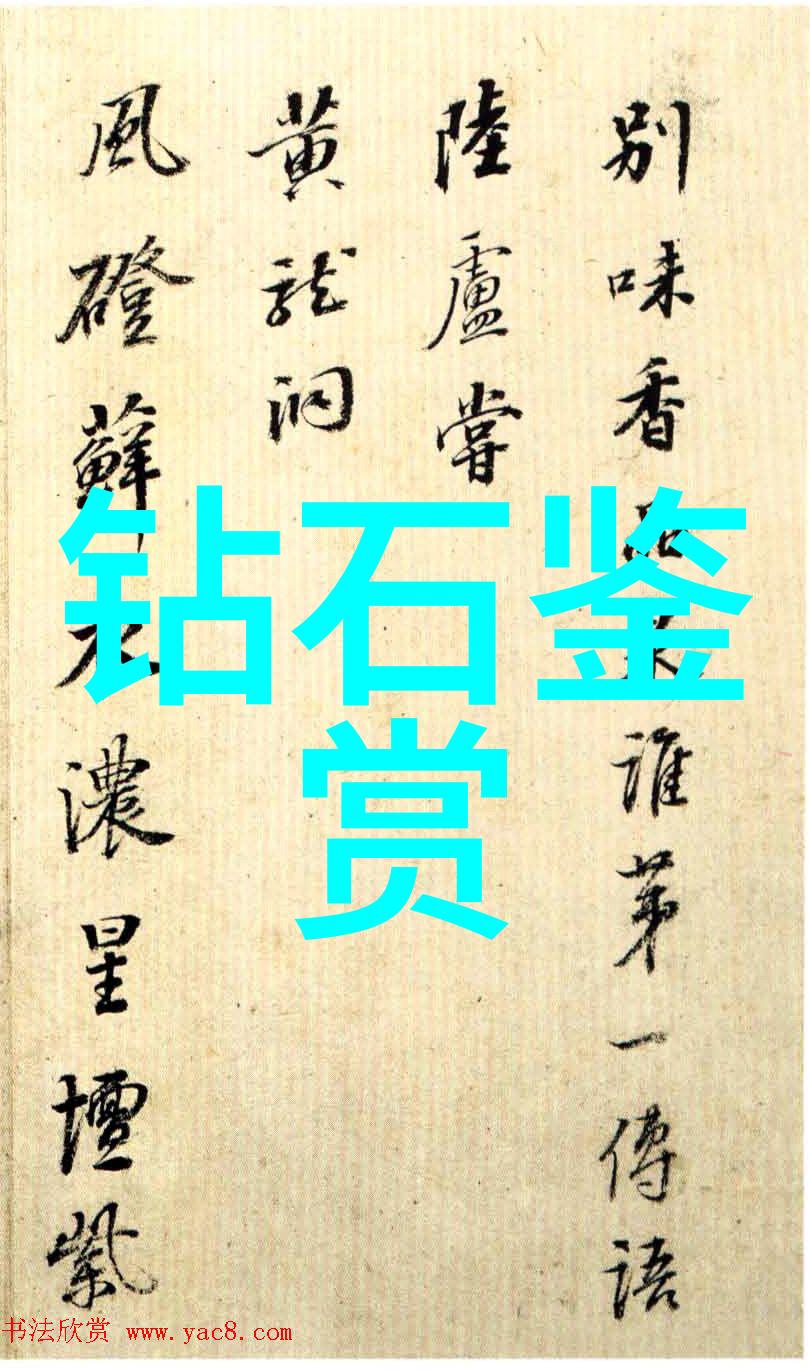 別味香誰第一傳語
陸盧嘗
黄龍洞
風磴蘚濃星壇紫
钻石鉴
赏
书法欣赏 www.yac8.com